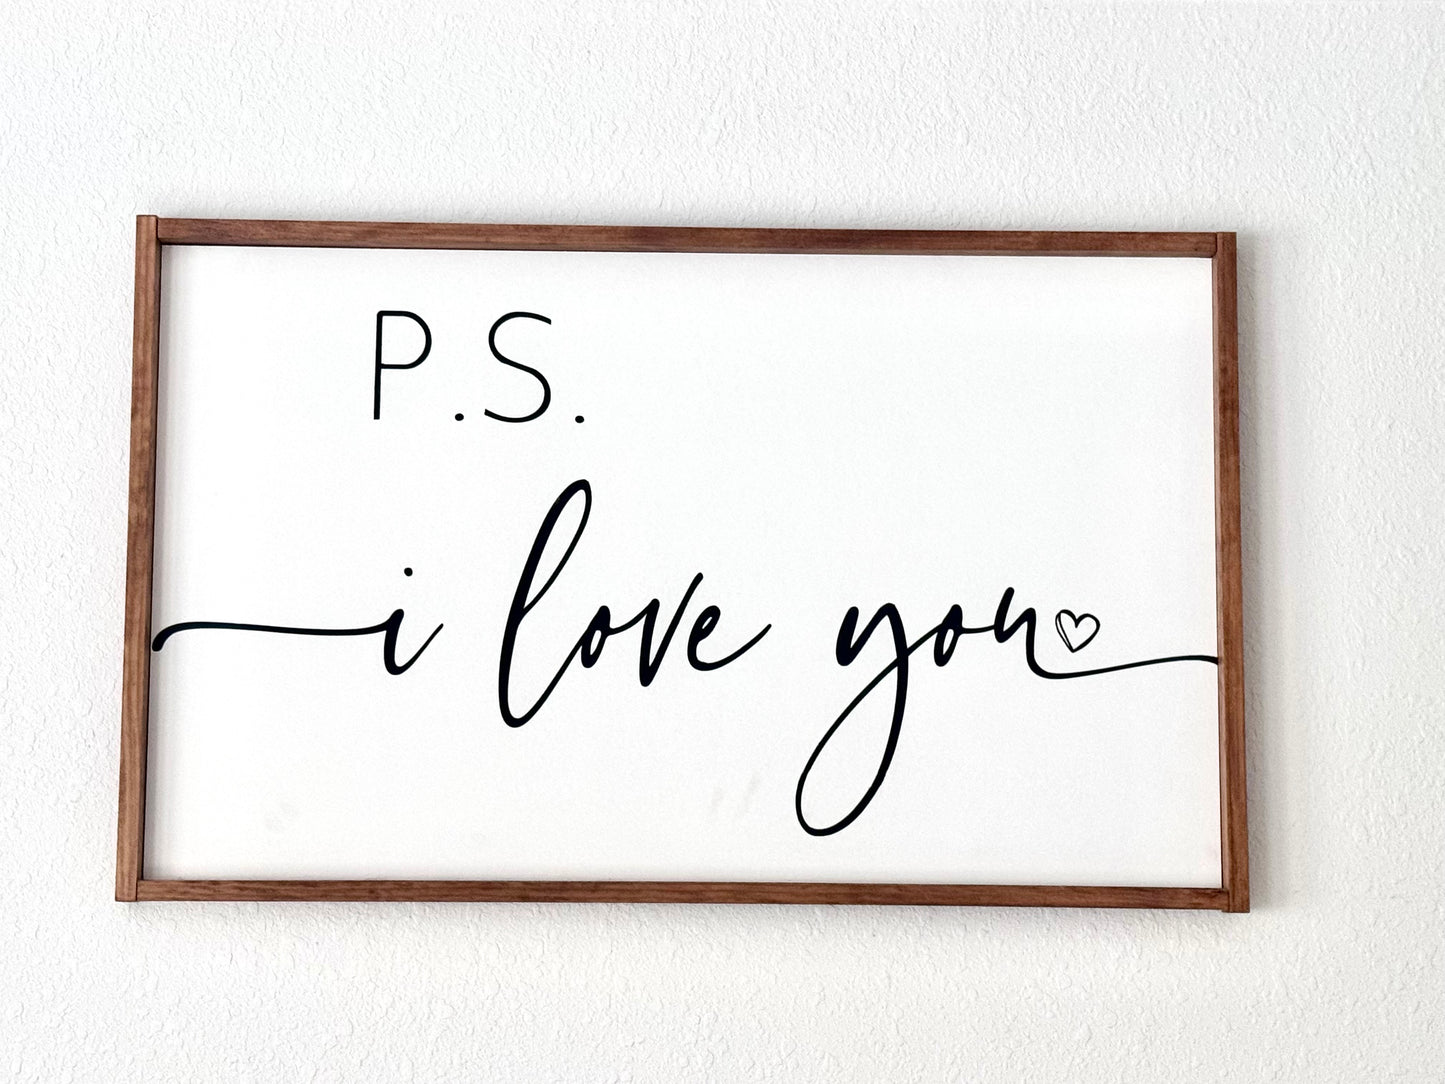 P.S.
i love you